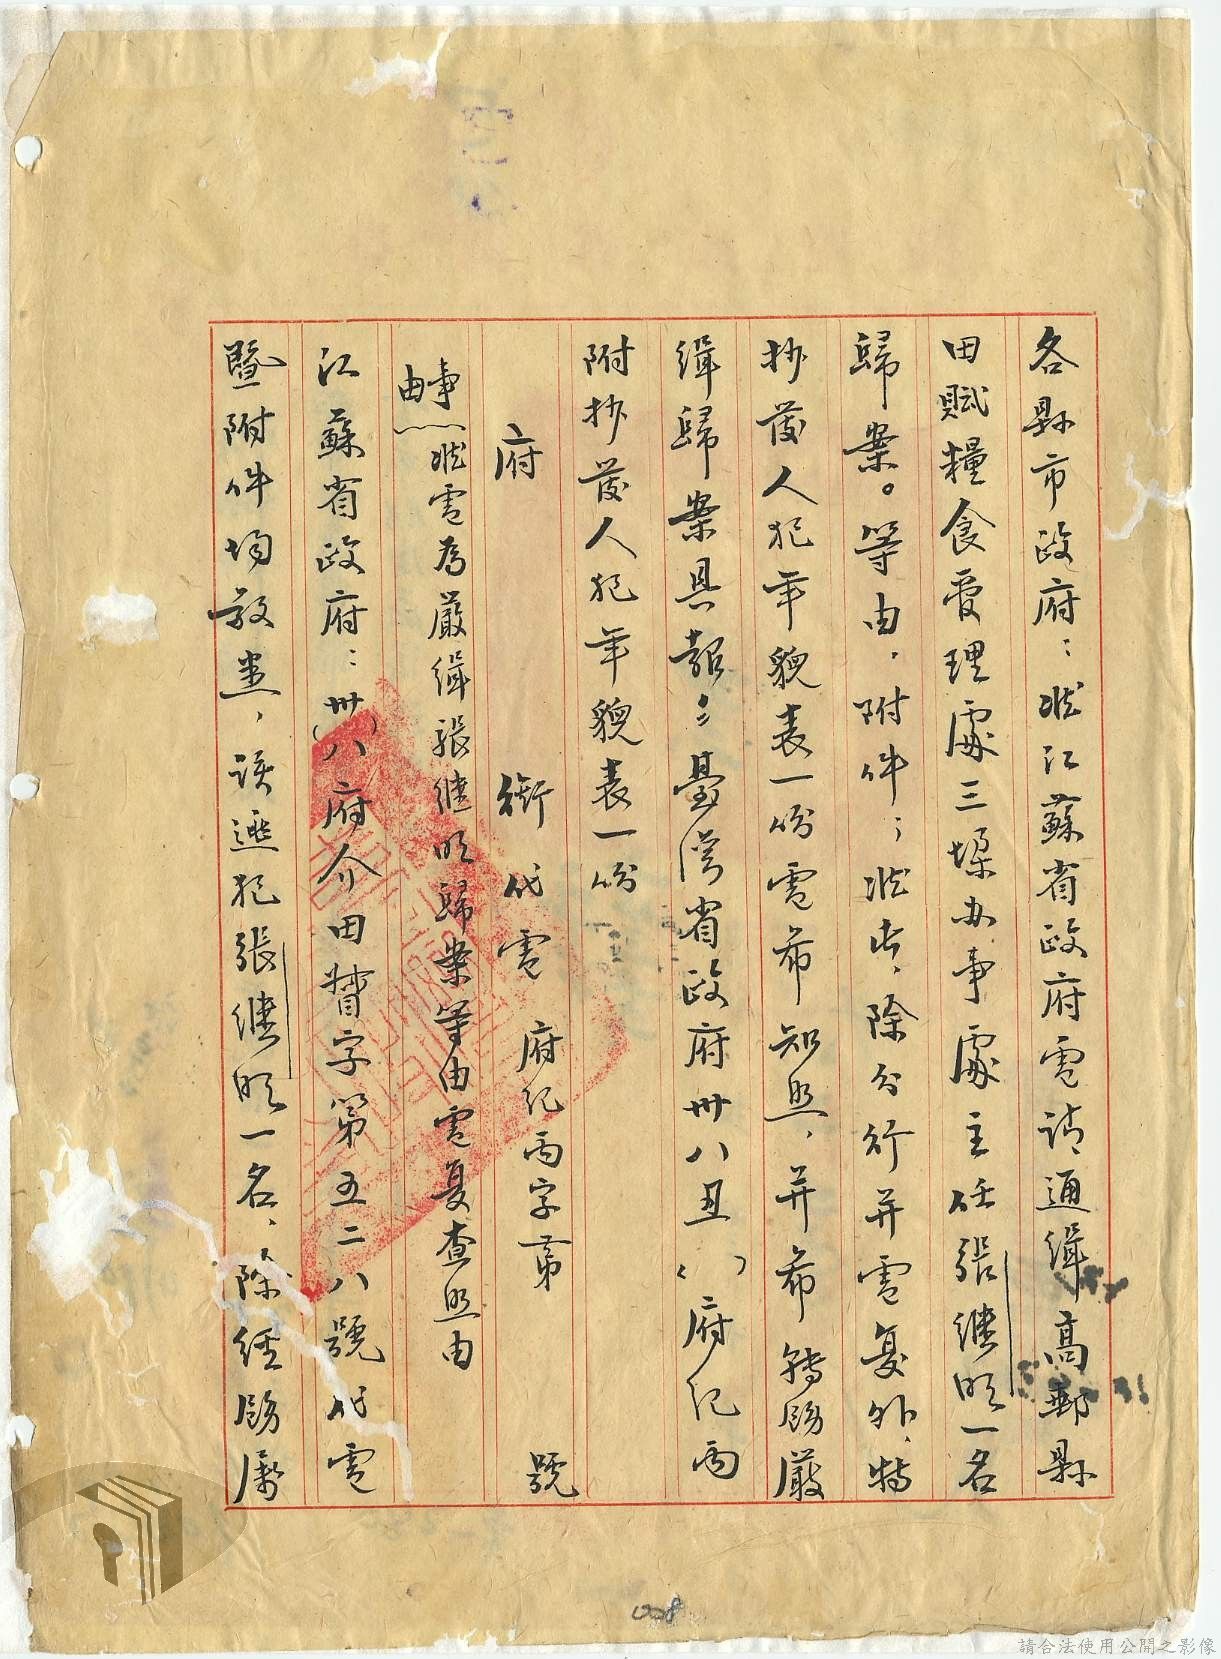 各縣市政府：准江蘇省政府電請通緝高郵縣
田賦糧食管理處三垛办事處主任張繼明一名
歸案。等由，附件；准此，除分行并電复外，特
抄發人犯年貌表一份電希知照，并希轉飭嚴
緝歸案具報。臺灣省政府卅八丑（ ）府紀丙
附抄發人犯年貌表一份
府 銜代電 府紀丙字第 號
事由
准電為嚴緝張继明歸案等由電复查照由
江蘇省政府：卅(八府介田督字第五二八號代電
暨附件均敬悉，該逃犯張繼明一名，除經飭屬
008
請合法使用公開之影像